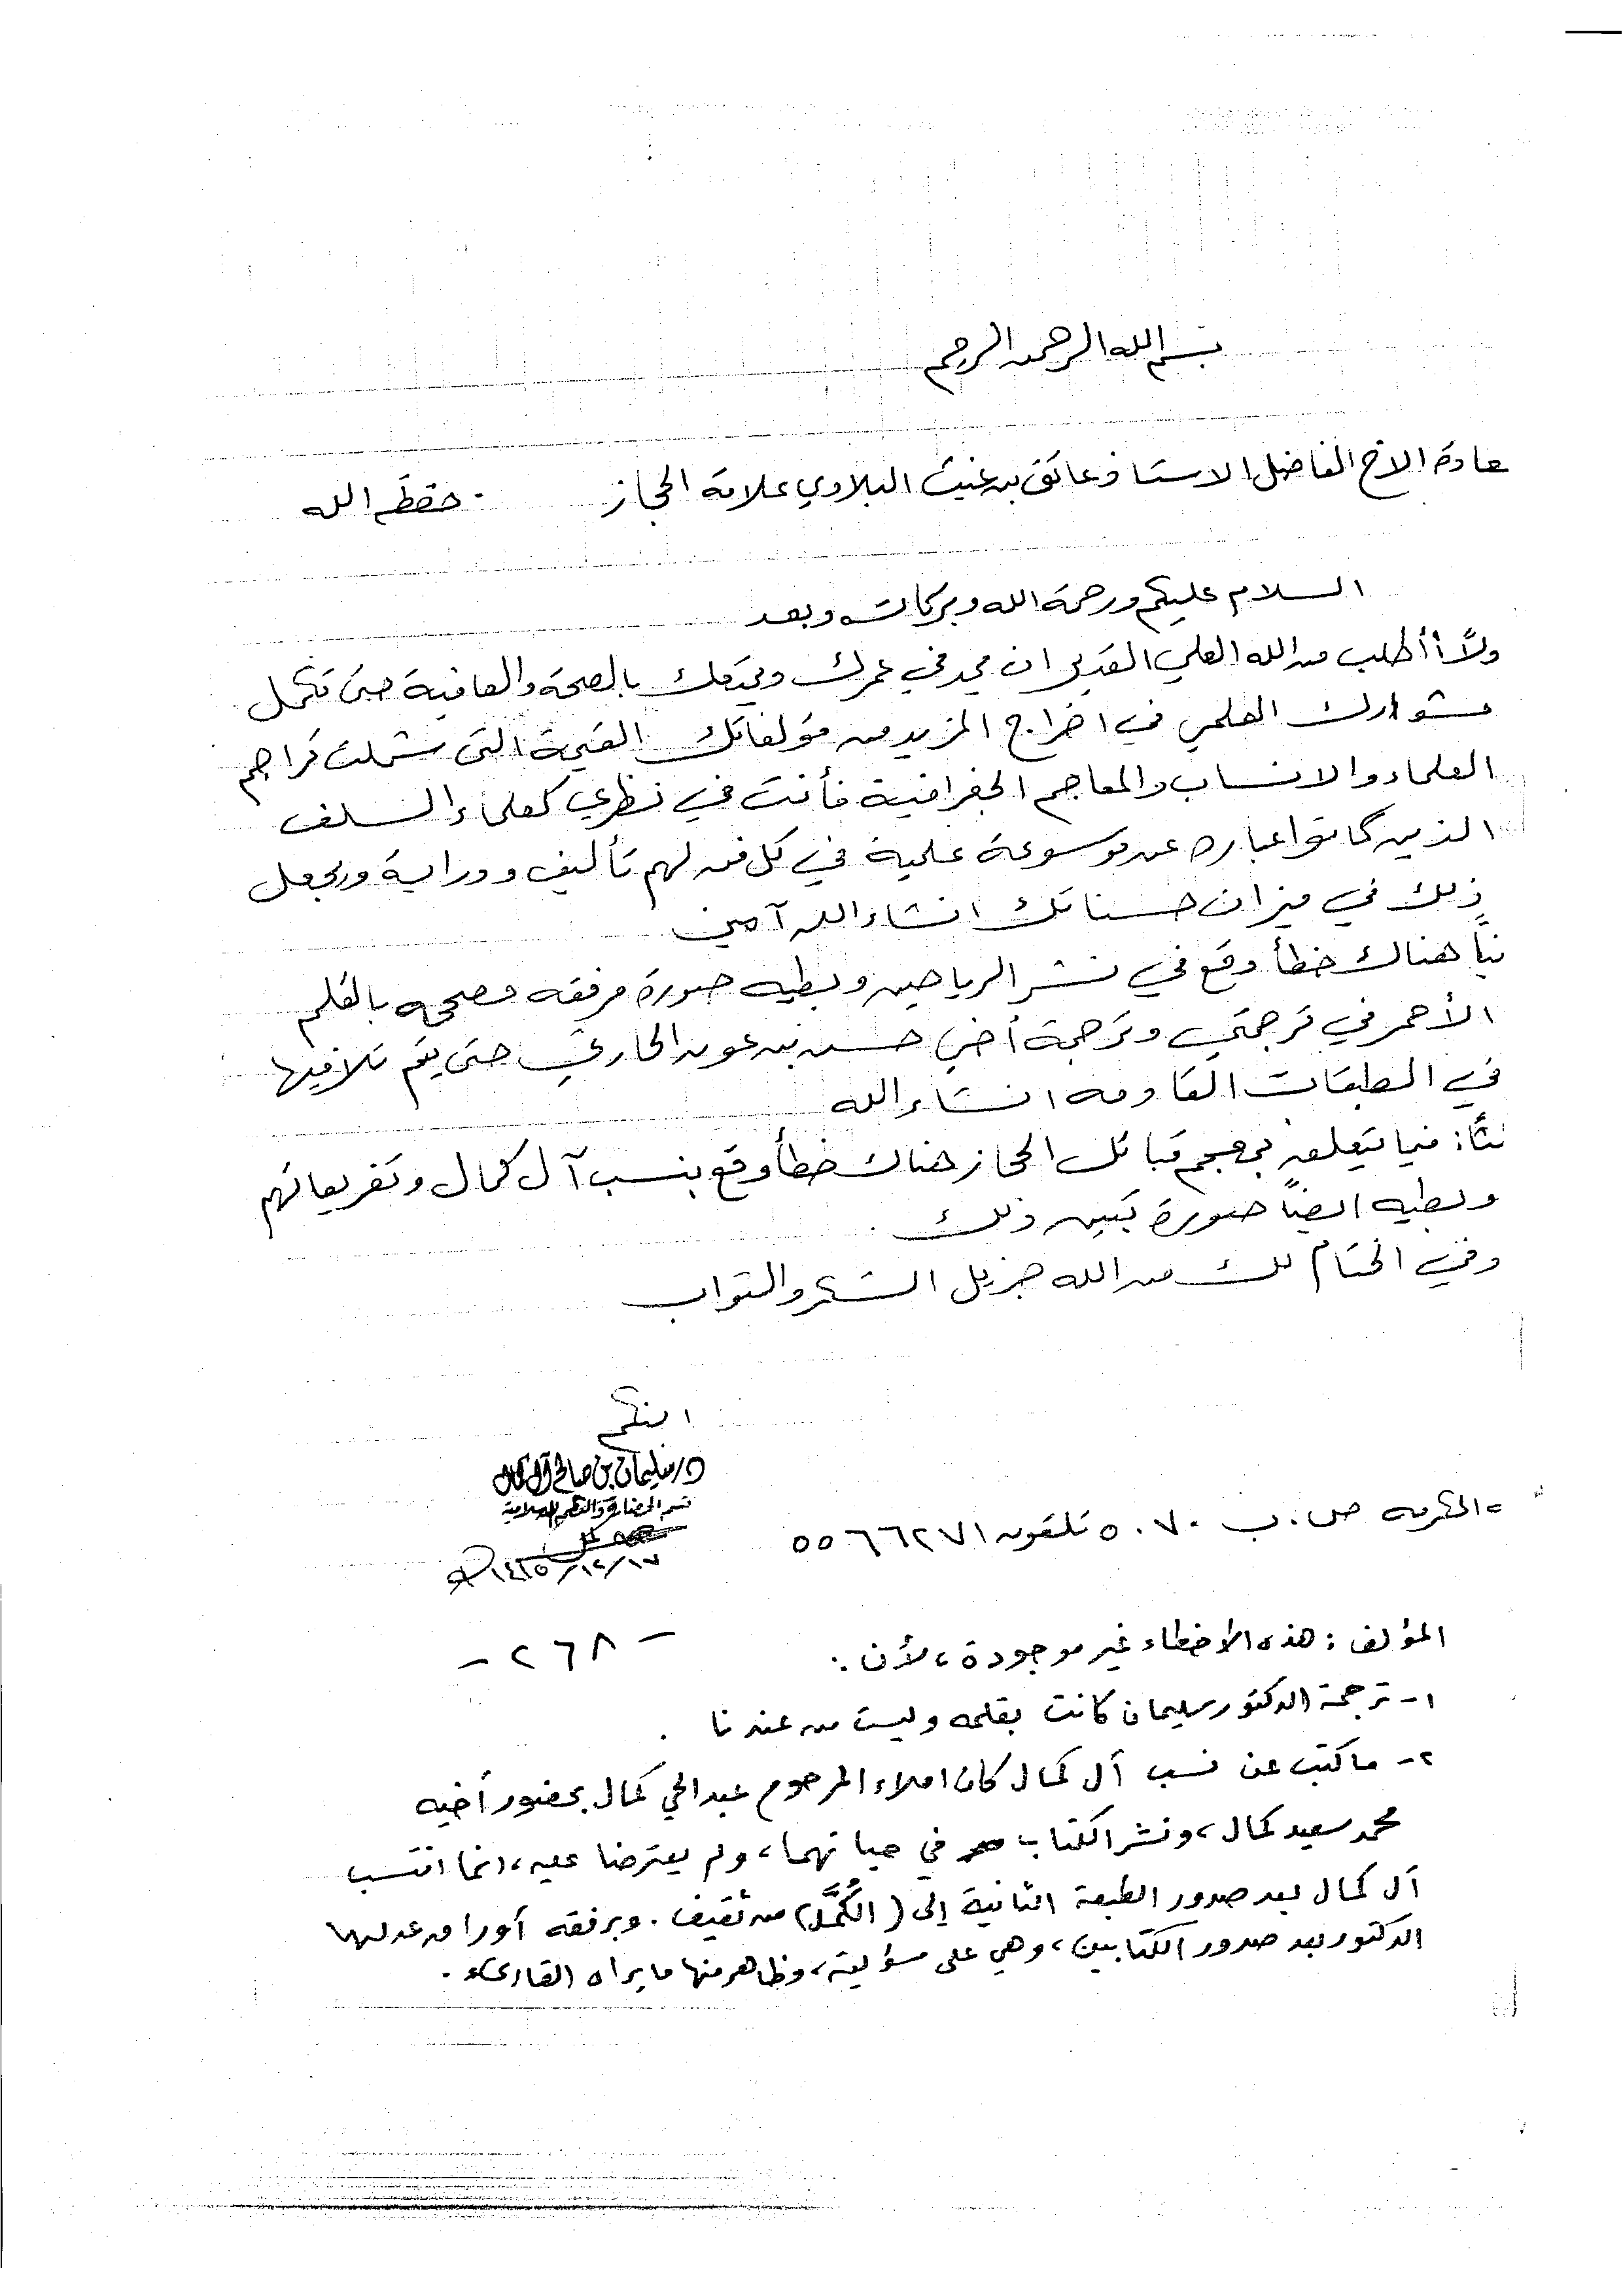 بسم الله الرحمن الرحيم
عادة الاخ الفاضل الاستاذ عاتق بن غيث البلادي علامة الحجاز حفظه الله
السلام عليكم ورحمة الله وبركاته وبعد
ولاً: أطلب من الله العلي القدير ان يمد في عمرك ويمتعك بالصحة والعافية حتى تكمل
مشوارك العلمي في اخراج المزيد من مؤلفاتك القيمة التي شملت تراجم
العلماء والانساب والمعاجم الجغرافية فأنت في نظري كعلماء السلف
الذين كانوا عباره عن موسوعة علمية في كل فن لهم تأليف ودراية ويجعل
ذلك في ميزان حسناتك انشاء الله آمين
نياً هناك خطأ وقع في نشر الرياحين وبطيه صورة مرفقه مصححه بالقلم
الأحمر في ترجمتي وترجمة أخي حسن بن عون الحارثي حتى يتم تلافيها
في الطبقات القادمه انشاء الله
لثاً: فيما يتعلق بمعجم قبائل الحجاز هناك خطأ وقع بنسب آل كمال وتفريعاتهم
وبطيه ايضاً صورة تبين ذلك
وفي الختام لك من الله جزيل الشكر والثواب
ابنكم
د/ سليمان بن صالح آل كمال
قسم الحضارة والنظم الإسلامية
١٤٢٥/١٢/١٧هـ
ة المكرمه ص.ب ٥٠٧٠ تلفون ٥٥٦٦٢٧١
المؤلف: هذه الأخطاء غير موجودة، لأن:
- ٢٦٨ -
١- ترجمة الدكتور سليمان كانت بقلمه وليست من عندنا.
٢- ما كتب عن نسب آل كمال كان املاء المرحوم عبد الحي كمال بحضور أخيه
محمد سعيد كمال، ونشر الكتاب في حياتهما، ولم يعترضا عليه، انما انتسب
آل كمال بعد صدور الطبعة الثانية إلى (الكُمَّل) من ثقيف. وبرفقه أوراق عدلها
الدكتور بعد صدور الكتابين، وهي على مسؤليته، وظاهر منها ما يراه القارىء.